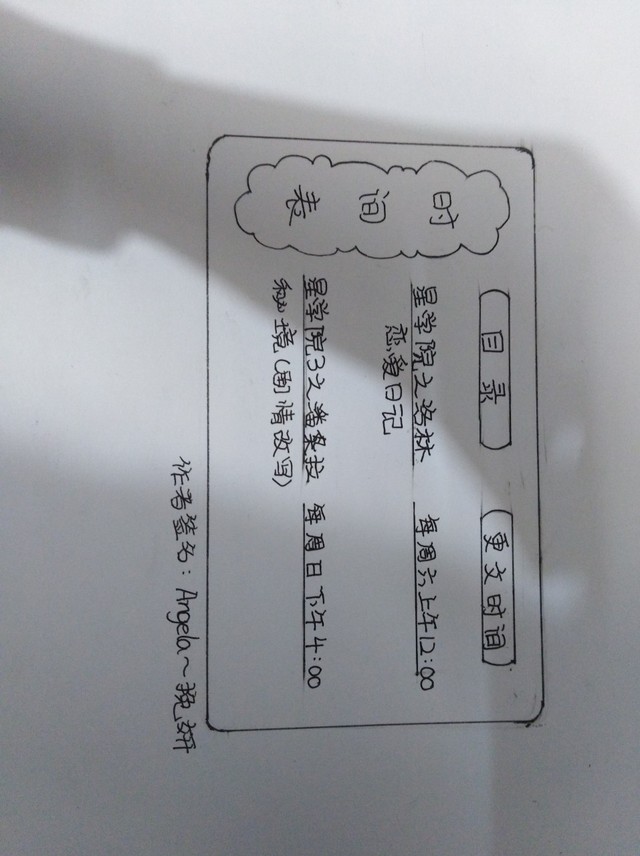 时间表
目录 更文时间
星学院之洛林 每周六上午12:00
恋爱日记
星学院3之潘朵拉 每周日下午4:00
秘境(剧情改写)
作者签名：Angela～婉妍